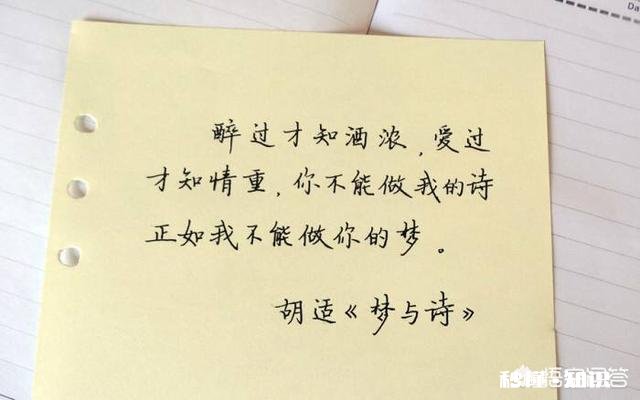 Da
醉过才知酒浓,爱过
才知情重,你不能做我的诗
正如我不能做你的梦。
胡适《梦与诗》
悟空问答